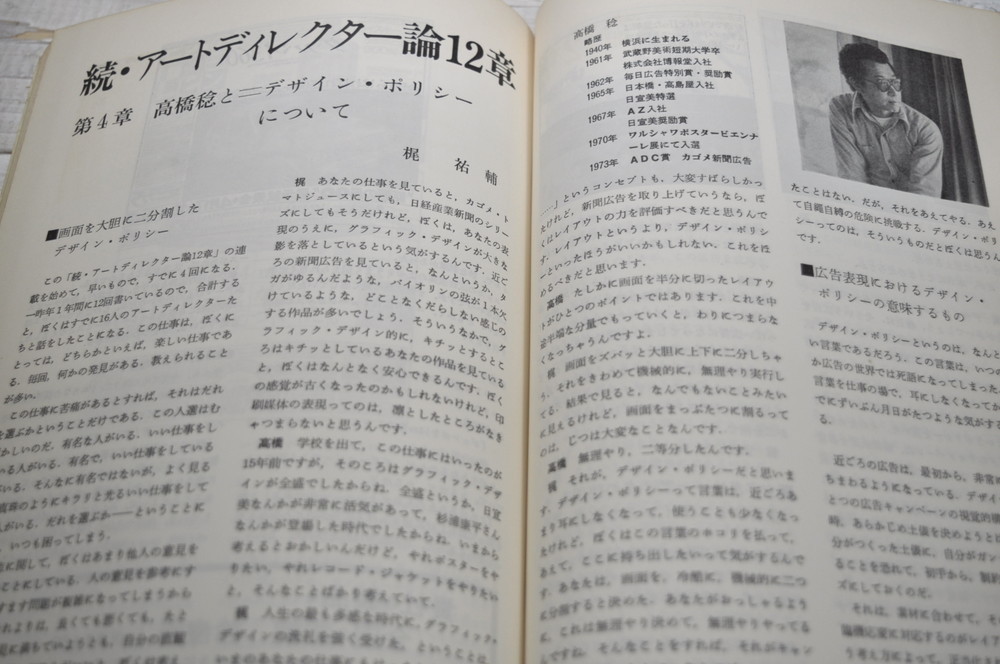 続・アートディレクター論12章
第4章 高橋稔と=デザイン・ポリシー
について
梶 祐輔
■画面を大胆に二分割した
デザイン・ポリシー
この「続・アートディレクター論12章」の連
載を始めて、早いもので、すでに4回になる。
一昨年1年間に12回書いているので、合計する
と、ぼくはすでに16人のアートディレクターた
ちと話をしたことになる。この仕事は、ぼくに
とっては、どちらかといえば、楽しい仕事であ
る。毎回、何かの発見がある。教えられること
が多い。
この仕事に苦痛があるとすれば、それはだれ
を選ぶかということだけである。この人選はむ
かしいのだ。有名な人がいる。いい仕事をし
いる人がいる。有名で、いい仕事をしている
がいる。そんなに有名ではないが、よく見る
のようにキラリと光るいい仕事をして
がいる。だれを選ぶか——ということに
、いつも困ってしまう。
に関して、ぼくはあまり他人の意見を
ことにしている。人の意見を参考にす
ます問題が複雑になってしまうから
れよりは、良くても悪くても、たと
梶 あなたの仕事を見ていると、カゴメ・ト
マトジュースにしても、日経産業新聞のシリー
ズにしてもそうだけれど、ぼくは、あなたの表
現のうえに、グラフィック・デザインが大きな
影を落としているという気がするんです。近ご
ろの新聞広告を見ていると、なんというか、タ
ガがゆるんだような、バイオリンの弦が1本欠
けているような、どことなくだらしない感じの
する作品が多いでしょう。そういうなかで、グ
ラフィック・デザイン的に、キチッとするとこ
ろはキチッとしているあなたの作品を見ている
と、ぼくはなんとなく安心できるんです。ぼく
の感覚が古くなったのかもしれないけれど、印
刷媒体の表現ってのは、凛としたところがなき
ゃつまらないと思うんです。
高橋 学校を出て、この仕事にはいったのが
15年前ですが、そのころはグラフィック・デザ
インが全盛でしたからね。全盛というか、日宣
美なんかが非常に活気があって、杉浦康平さん
なんかが登場した時代でしたからね。いまから
考えるとおかしいんだけど、やれポスターをや
りたい、やれレコード・ジャケットをやりたい
と、そんなことばかり考えていて。
梶 人生の最も多感な時代に、グラフィック・
デザインの洗礼を強く受けた、ということは、
高橋 稔
略歴
1940年 横浜に生まれる
1961年 武蔵野美術短期大学卒
株式会社博報堂入社
1962年 毎日広告特別賞・奨励賞
1965年 日本橋・高島屋入社
日宣美特選
1967年 AZ入社
日宣美奨励賞
1970年 ワルシャワポスタービエンナ
ーレ展にて入選
1973年 ADC賞 カゴメ新聞広告
——」というコンセプトも、大変すばらしかっ
たけれど、新聞広告を取り上げていうなら、ぼ
くはレイアウトの力を評価すべきだと思うんで
す。レイアウトというより、デザイン・ポリシ
ーといったほうがいいかもしれない。これをほ
めるべきだと思います。
高橋 たしかに画面を半分に切ったレイアウ
トがひとつのポイントではあります。これを中
途半端な分量でもっていくと、わりにつまらな
くなっちゃうんですよ。
梶 画面をズバッと大胆に上下に二分しちゃ
う。それをきわめて機械的に、無理やり実行し
てる。結果で見ると、なんでもないことみたい
に見えるけれど、画面をまっぷたつに割るって
のは、じつは大変なことなんです。
高橋 無理やり、二等分したんです。
梶 それが、デザイン・ポリシーだと思いま
す。デザイン・ポリシーって言葉は、近ごろあ
まり耳にしなくなって、使うことも少なくなっ
たけれど、ぼくはこの言葉のホコリを払って、
あえて、ここに持ち出したいって気がするんで
す。あなたは、画面を、冷酷に、機械的に二つ
に分割すると決めた。あなたがおっしゃるよう
に、これは無理やり決めて、無理やりやってる
んですね。そんなことをすれば、それがキャン
たことはない。だが、それをあえてやる。あえ
て自縄自縛の危険に挑戦する。デザイン・ポリ
シーってのは、そういうものだとぼくは思うん
です。
■広告表現におけるデザイン・
ポリシーの意味するもの
デザイン・ポリシーというのは、なんと
い言葉であるだろう。この言葉は、いつの
か広告の世界では死語になってしまった
言葉を仕事の場で、耳にしなくなってか
でにずいぶん月日がたつような気がする
る。
近ごろの広告は、最初から、非常
ちまわるようになっている。デザイ
とつの広告キャンペーンの視覚的
時、あらかじめ土俵を決めようとは
分がつくった土俵に、自分がガン
ることを恐れて、初手から、
ズにしておくのだ。
それは、素材に合わせて、そ
臨機応変に対応するのがレイア